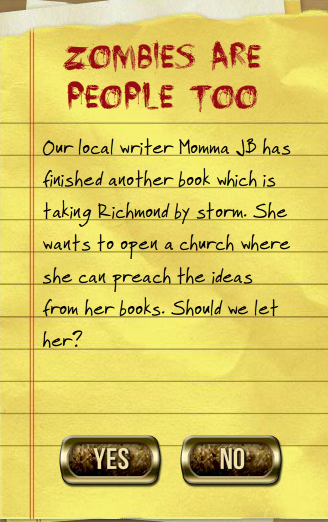 ZOMBIES ARE
PEOPLE TOO
Our local writer Momma JB has
finished another book which is
taking Richmond by storm. She
wants to open a church where
she can preach the ideas
from her books. Should we let
her?
YES NO